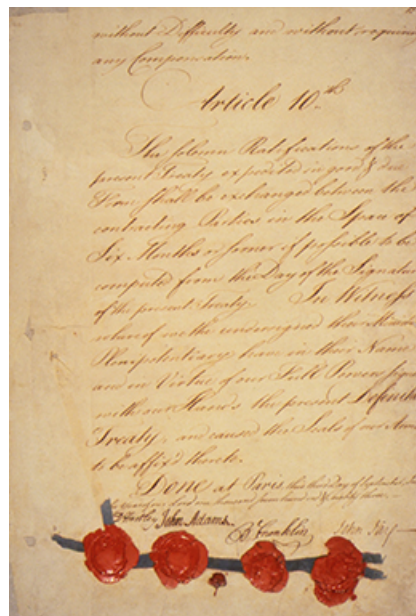 without Difficulty and without requiring
any Compensation.
Article 10th
The solemn Ratifications of the
present Treaty expedited in good & due
Form shall be exchanged between the
contracting Parties in the Space of
Six Months or sooner if possible to be
computed from the Day of the Signature
of the present Treaty. In Witness
whereof we the undersigned their Ministers
Plenipotentiary have in their Name
and in Virtue of our Full Powers signed
with our Hands the present Definitive
Treaty, and caused the Seals of our Arms
to be affix'd thereto.
Done at Paris, this third Day of September,
in the year of our Lord one thousand seven hundred & eighty three.
D Hartley John Adams. B Franklin John Jay